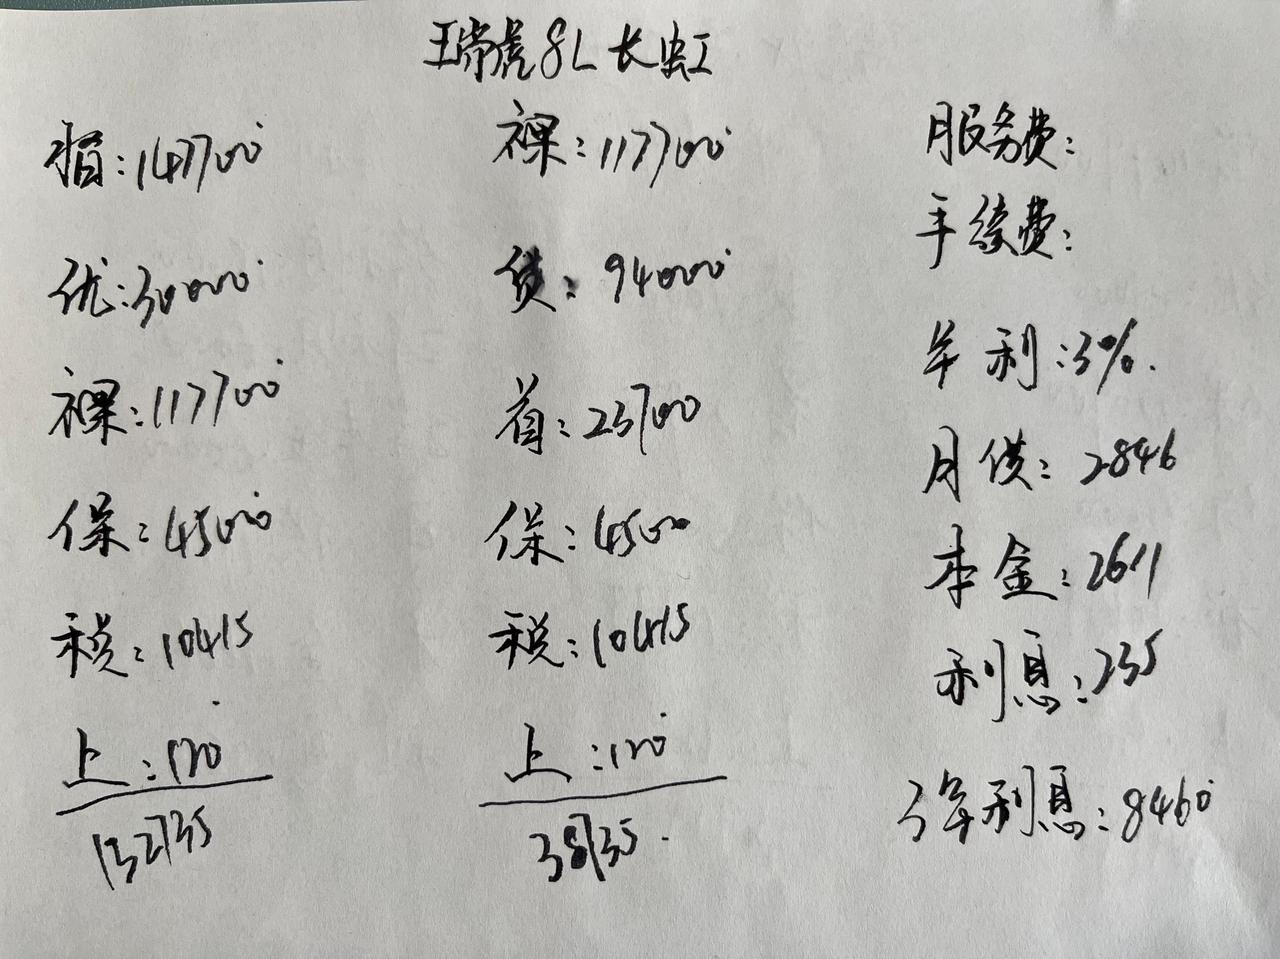 瑞虎8L长虹
指:147700
优:30000
裸:117700
保:4500
税:10415
上:120
132735
裸:117700
贷:94000
首:23700
保:4500
税:10415
上:120
38735.
服务费:
手续费:
年利:3%.
月供:2846
本金:2611
利息:235
3年利息:8460